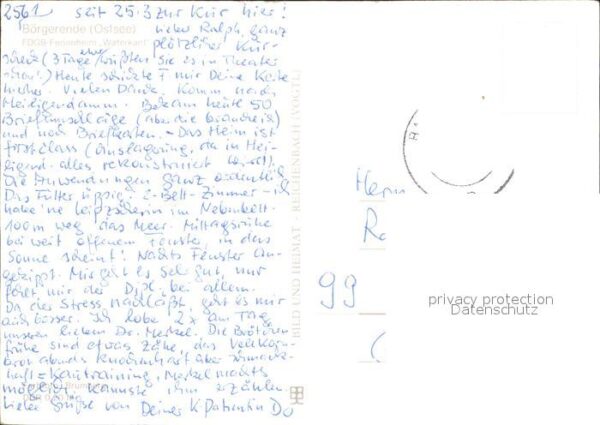 2561 seit 25.3 zur Kur hier!
Börgerende (Ostsee)
FDGB-Ferienheim „Waterkant"
Lieber Ralph, ganz
plötzlicher Kur-
(3 Tage eher wüßten sie es im Theater
schon!) Heute schickte F mir Deine Karte
hierher. Vielen Dank. Komm. nach
Heiligendamm. Bekam heute 50
Briefumschläge (aber die
und noch Briefkarten. - Das Heim ist
first class (Auslagerung, da in Hei-
ligend. alles rekonstruiert wird).
Die Anwendungen ganz ordentlich
Das Futter üppig. 2-Bett-Zimmer - ich
habe 'ne Leipzigerin im Nebenbett.
100m weg das Meer. Mittagsruhe
bei weit offenem Fenster, in das
Sonne scheint! Nachts Fenster an-
gekippt. Mir geht es sehr gut, nur
stört mir die bei allem.
Da der Stress nachläßt, geht es mir
auch besser. Ich lobe 2x am Tag
unseren lieben Dr. Merkel. Die Brötchen
frühe sind etwas zähe, das Vollkorn-
brot abends knochenhart aber schmack-
haft = Kautraining, Merkel
möglich. Kannste ihm erzählen
Liebe Grüße von Deiner K-Patientin D
BILD UND HEIMAT · REICHENBACH (VOGTL)
Herrn
R
99
privacy protection
Datenschutz